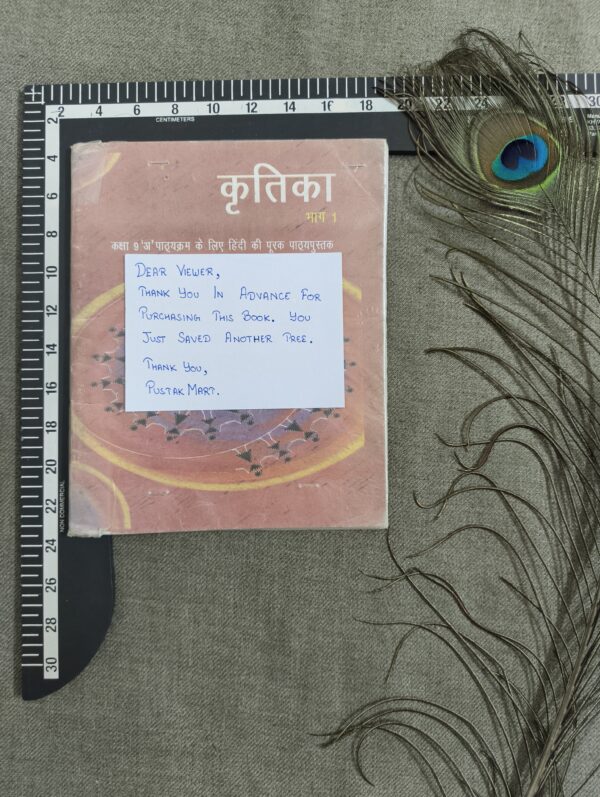 2 4 6 8 10 12 14 16 18 20 22 24 30
CENTIMETERS
कृतिका
भाग 1
कक्षा 9 'अ' पाठ्यक्रम के लिए हिंदी की पूरक पाठ्यपुस्तक
DEAR VIEWER,
THANK YOU IN ADVANCE FOR
PURCHASING THIS BOOK. YOU
JUST SAVED ANOTHER TREE.
THANK YOU,
PUSTAK MART.
2
4
6
8
10
12
14
16
18
20
22
24
26
28
30
NON COMMERCIAL